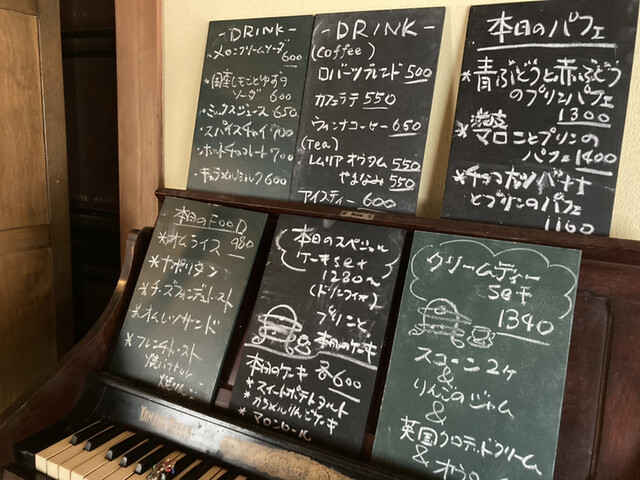 -DRINK-
・メロンクリームソーダ
600
・国産レモンとゆずの
ソーダ 600
・ミックスジュース 650
・スパイスチャイ 700
・ホットチョコレート 700
・キャラメルミルク 600
-DRINK-
(coffee)
ロバーツブレンド 500
カフェラテ 550
ウィンナコーヒー 650
(tea)
レムリア オウタム 550
やまなみ 550
アイスティー 600
本日のパフェ
*青ぶどうと赤ぶどう
のプリンパフェ
1300
*渋皮
マロンとプリンの
パフェ 1400
*チョコナッツバナナ
とプリンのパフェ
1100
本日のFOOD
*オムライス 980
*ナポリタン
*チーズフォンデュトースト
*オムレツサンド
*フレンチトースト
本日のスペシャル
ケーキset
1280〜
(ドリンク付き)
プリンと
本日のケーキ
本日のケーキ 各600
*スイートポテトタルト
*カラメルりんごケーキ
*マロンロール
クリームティー
set
1340
スコーン2ヶ
&
りんごのジャム
&
英国クロテッドクリーム
&
YAMAHA